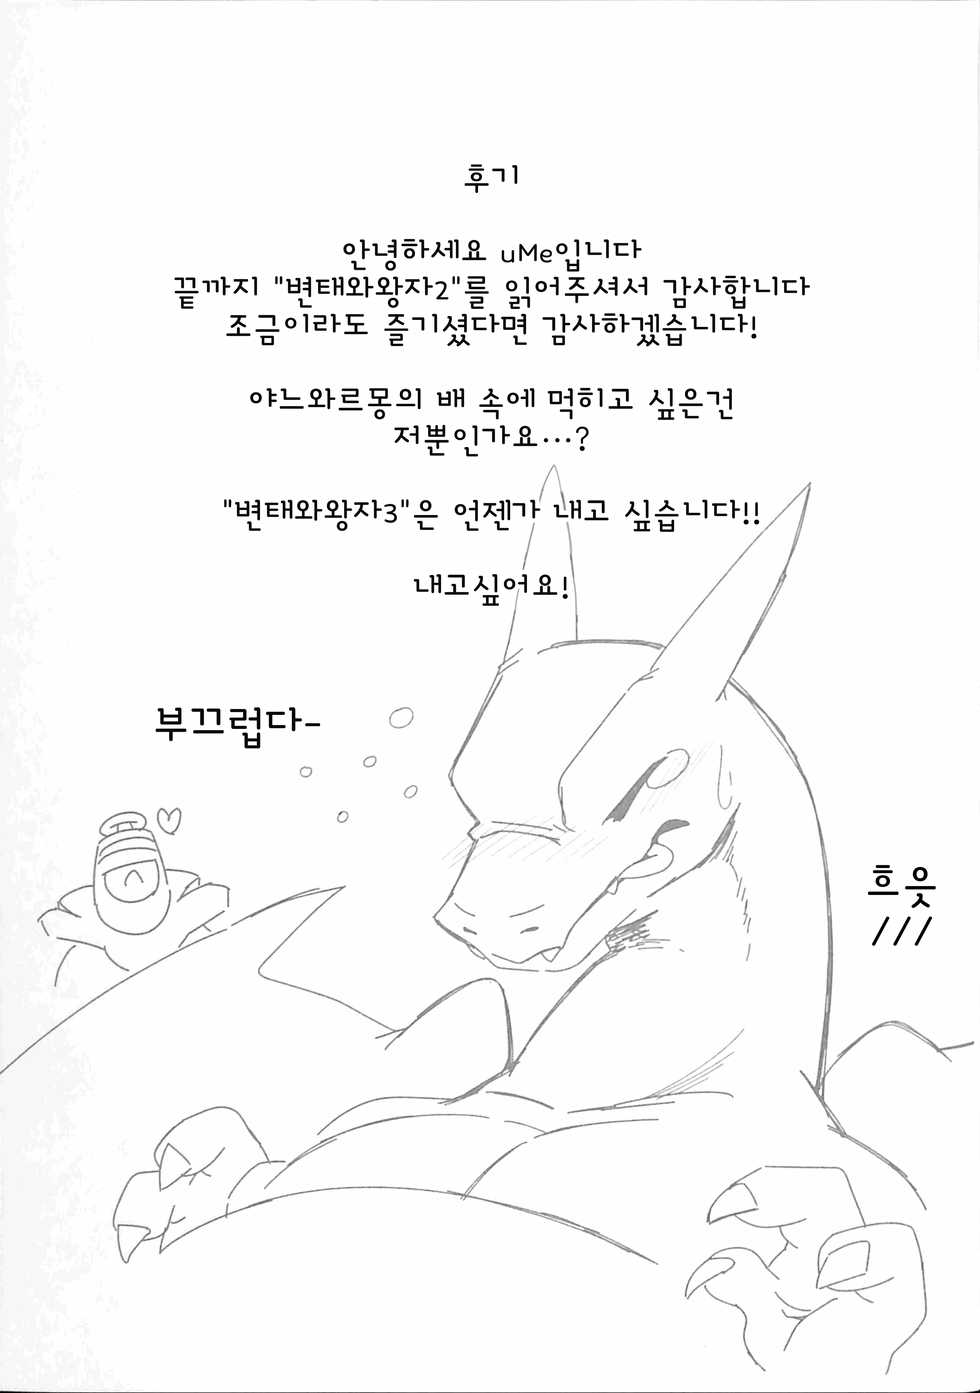 후기
안녕하세요 uMe입니다
끝까지 "변태와왕자2"를 읽어주셔서 감사합니다
조금이라도 즐기셨다면 감사하겠습니다!
야느와르몽의 배 속에 먹히고 싶은건
저뿐인가요...?
"변태와왕자3"은 언젠가 내고 싶습니다!!
내고싶어요!
부끄럽다-
흐읏
///